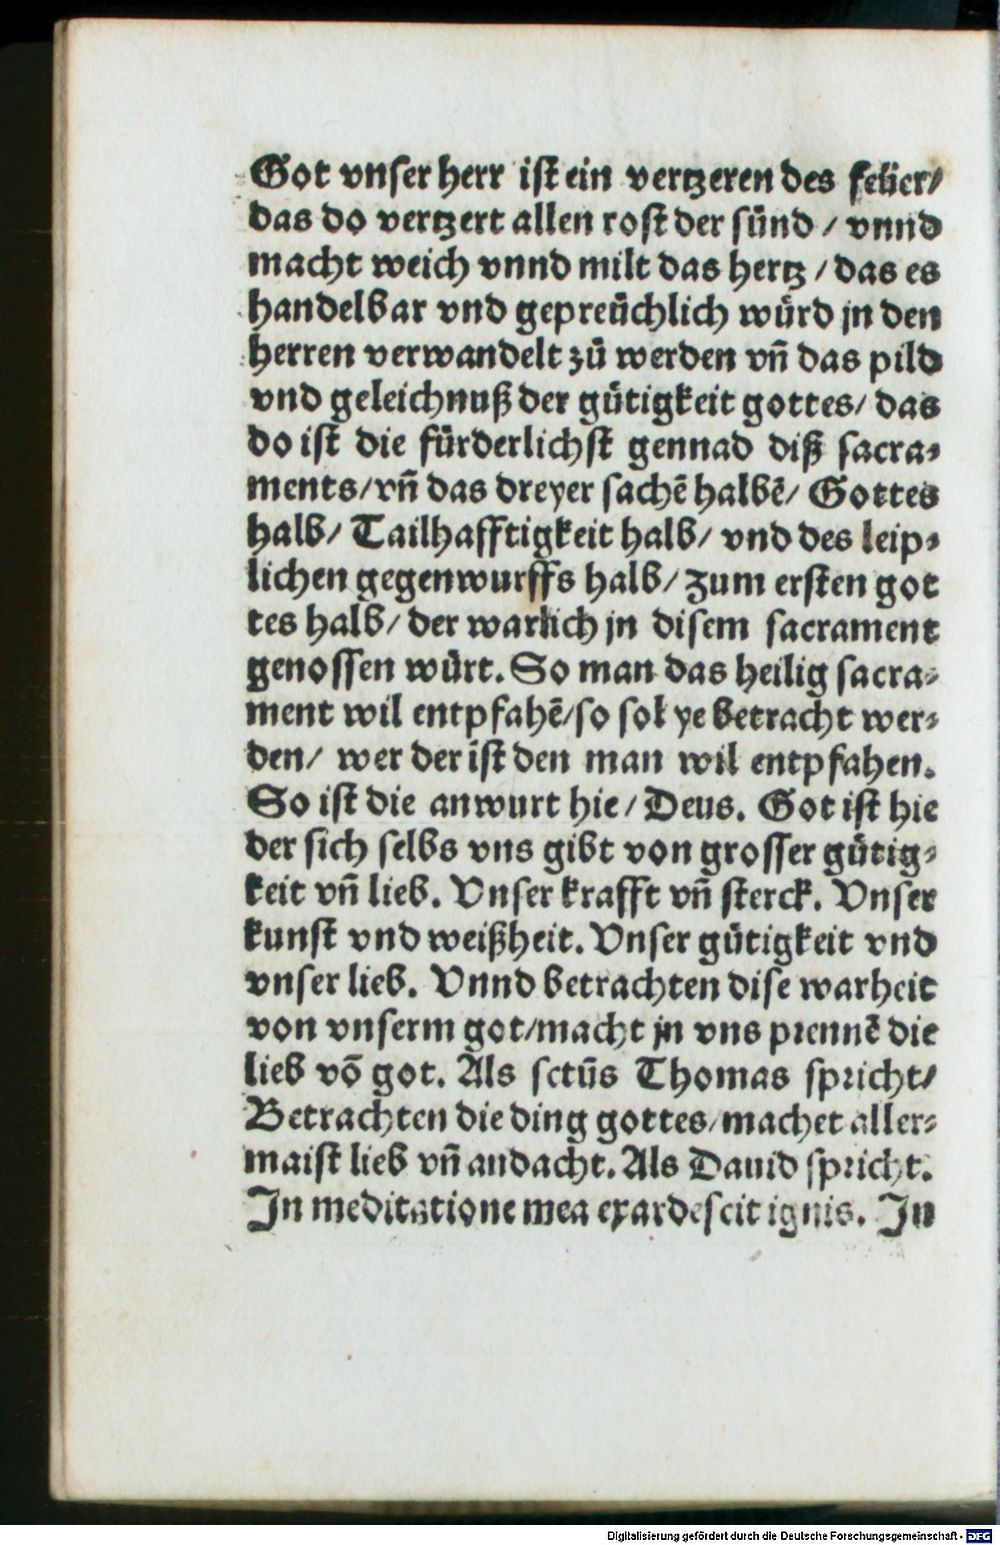 Got vnser herr ist ein vertzeren des feüer/
das do vertzert allen rost der sünd / vnnd
macht weich vnnd milt das hertz / das es
handelbar vnd gepreüchlich würd jn den
herren verwandelt zů werden vñ das pild
vnd geleichnuß der gütigkeit gottes/ das
do ist die fürderlichst gennad diß sacra⸗
ments/vñ das dreyer sachē halbē/ Gottes
halb/ Tailhafftigkeit halb/ vnd des leip⸗
lichen gegenwurffs halb/ zum ersten got
tes halb/ der warlich jn disem sacrament
genossen würt. So man das heilig sacra⸗
ment wil entpfahē/so sol ye betracht wer⸗
den/ wer der ist den man wil entpfahen.
So ist die anwurt hie / Deus. Got ist hie
der sich selbs vns gibt von grosser gütig⸗
keit vñ lieb. Vnser krafft vñ sterck. Vnser
kunst vnd weißheit. Vnser gütigkeit vnd
vnser lieb. Vnnd betrachten dise warheit
von vnserm got/macht jn vns prennē die
lieb vō got. Als sctūs Thomas spricht/
Betrachten die ding gottes/machet aller⸗
maist lieb vñ andacht. Als Dauid spricht.
In meditatione mea exardescit ignis. In
Digitalisierung gefördert durch die Deutsche Forschungsgemeinschaft - DFG